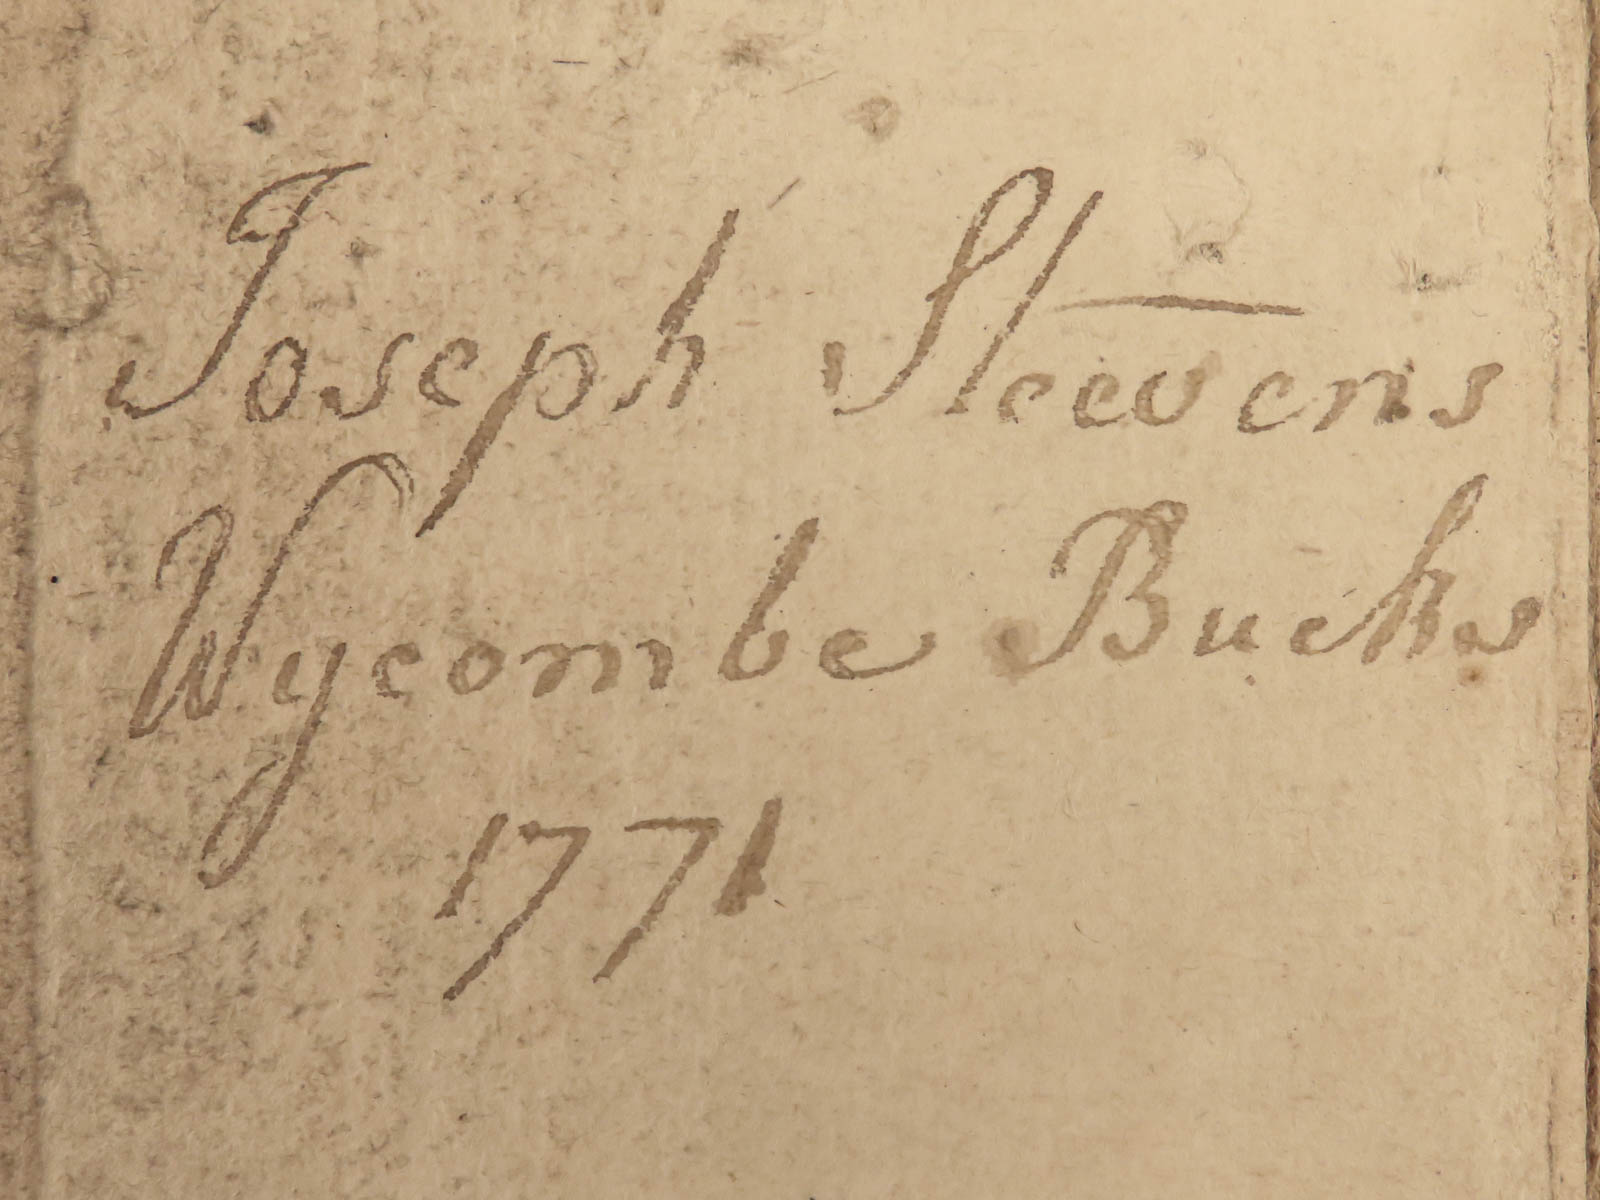 Joseph Steevens
Wycombe Bucks
1771